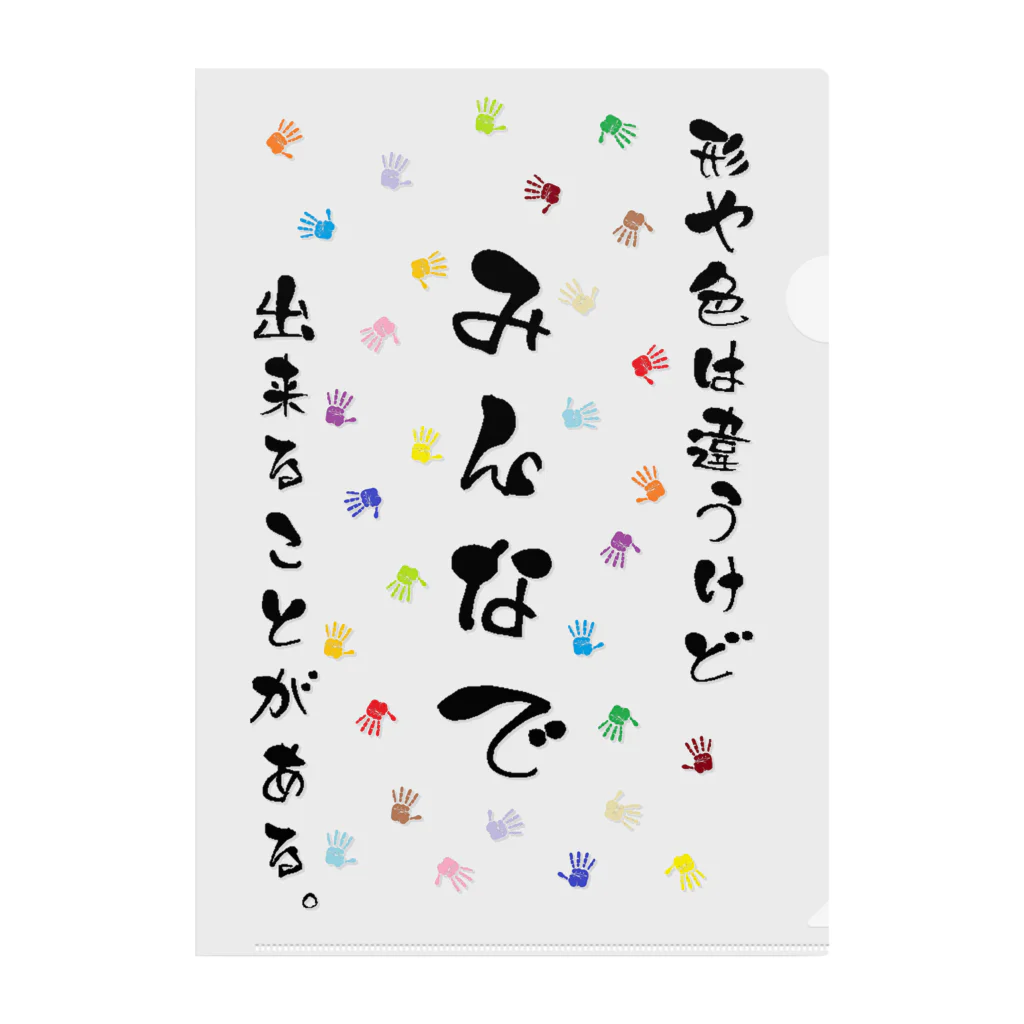 形や色は違うけど
みんなで
出来ることがある。